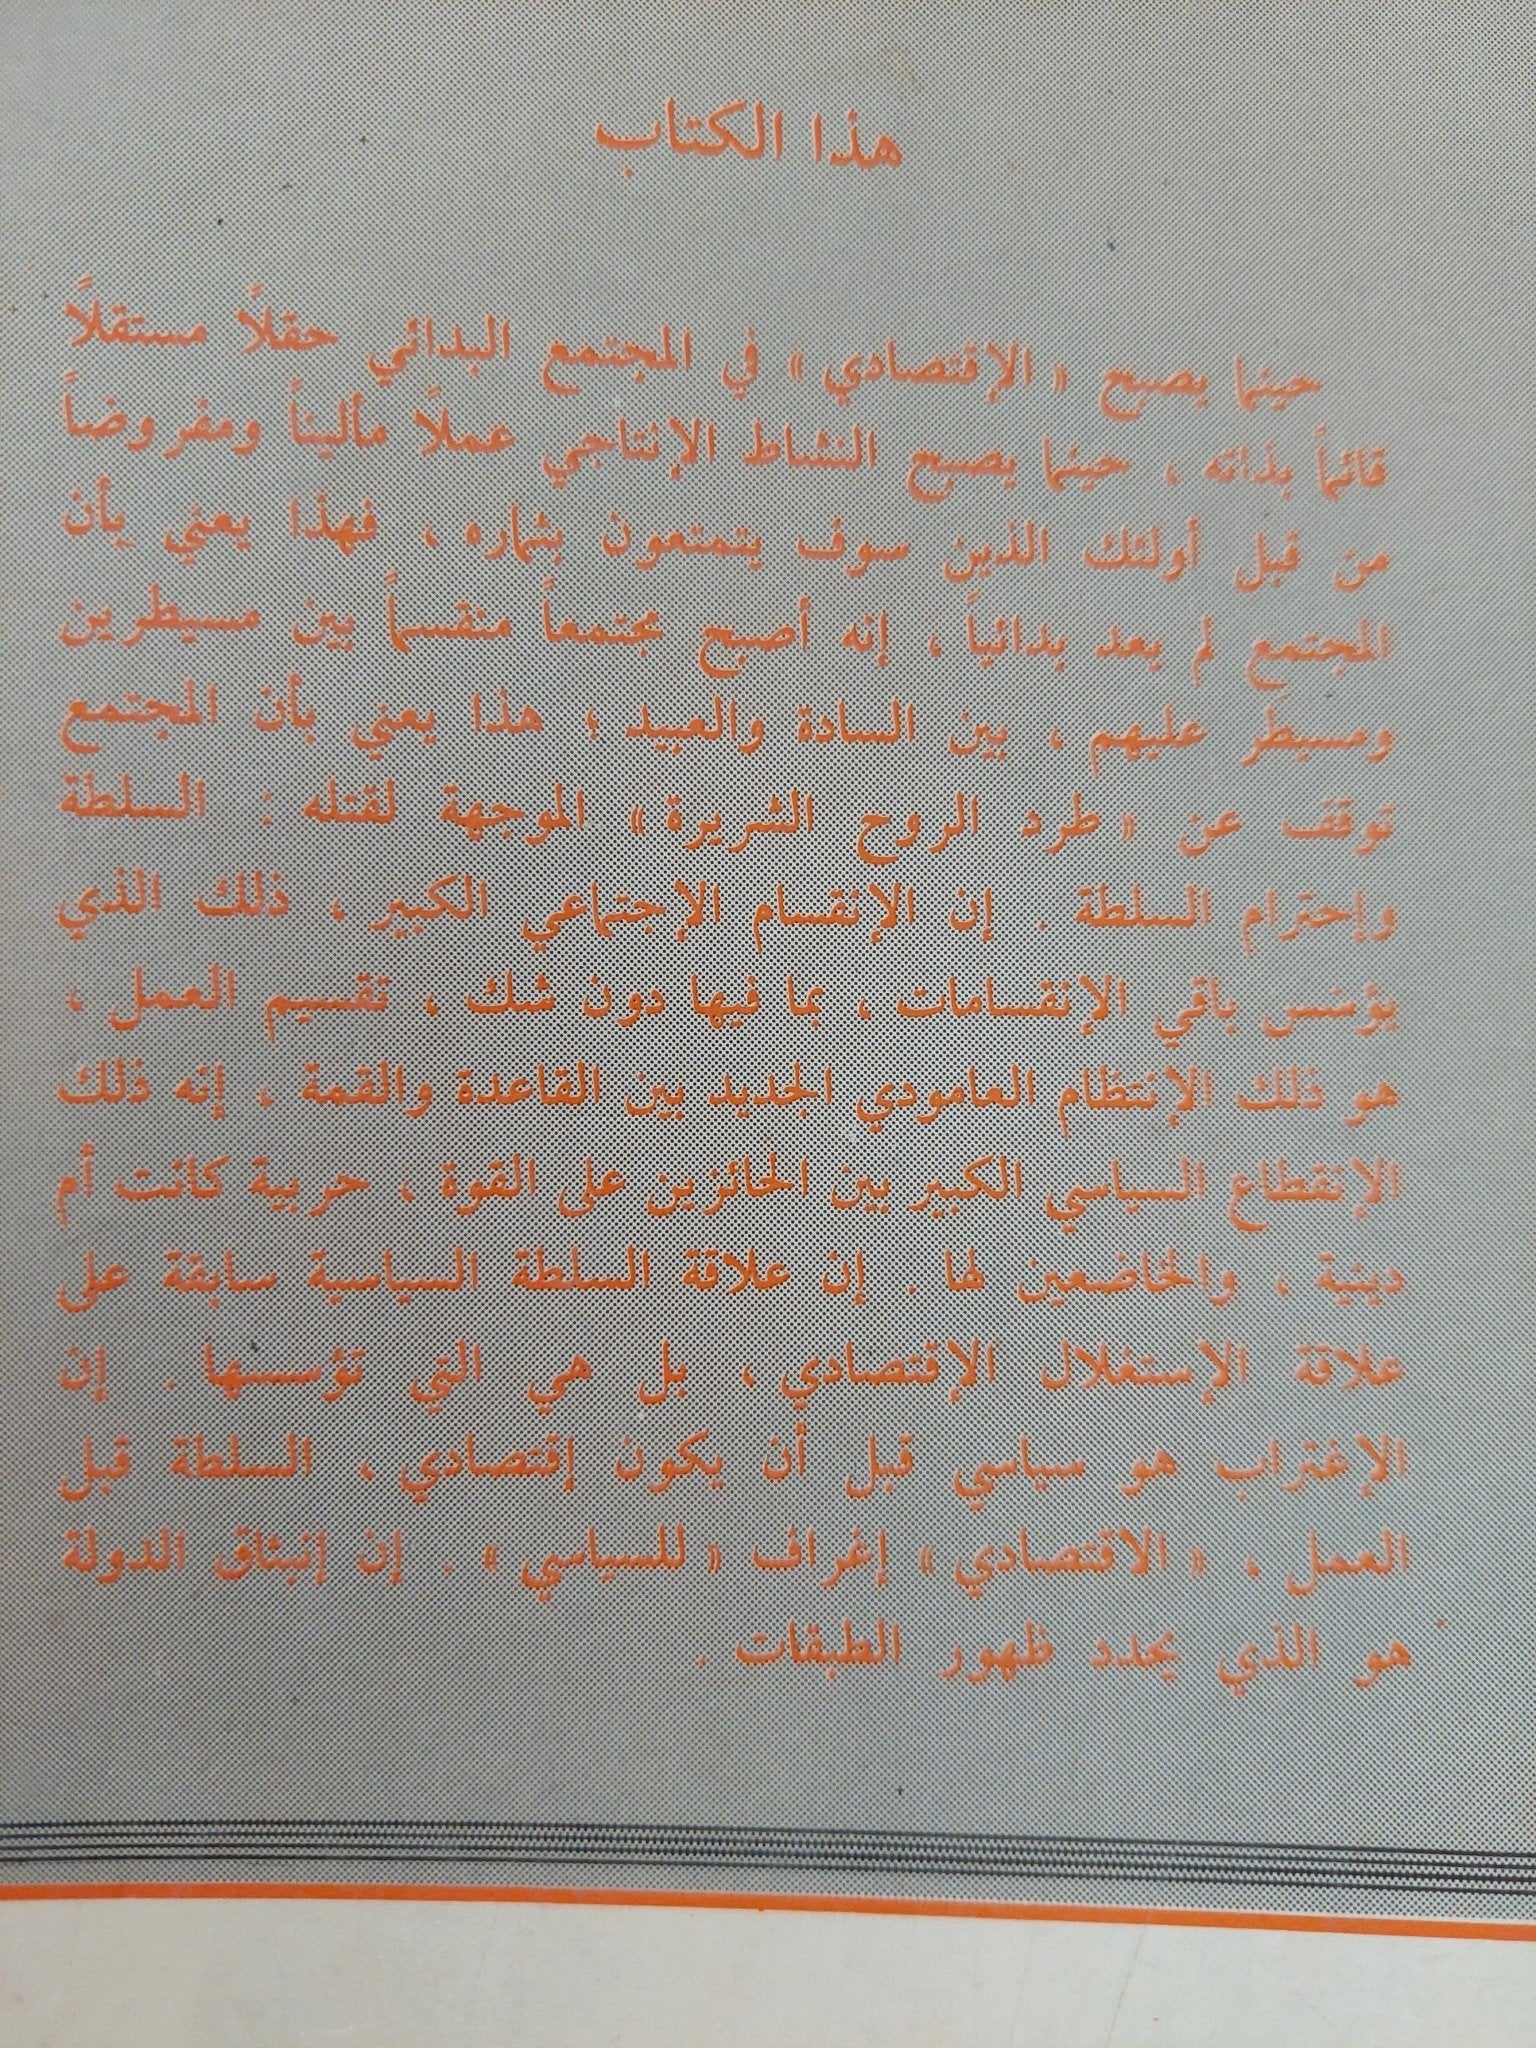 هذا الكتاب
حينما يصبح « الإقتصادي » في المجتمع البدائي حقلاً مستقلاً
قائماً بذاته ، حينما يصبح النشاط الإنتاجي عملاً مأليناً ومفروضاً
من قبل أولئك الذين سوف يتمتعون بثماره ، فهذا يعني بأن
المجتمع لم يعد بدائياً ، إنه أصبح مجتمعاً منقسماً بين مسيطرين
ومسيطر عليهم ، بين السادة والعبيد ؛ هذا يعني بأن المجتمع
توقف عن « طرد الروح الشريرة » الموجهة لقتله : السلطة
وإحترام السلطة . إن الإنقسام الإجتماعي الكبير ، ذلك الذي
يؤسس باقي الإنقسامات ، بما فيها دون شك ، تقسيم العمل ،
هو ذلك الإنتظام العامودي الجديد بين القاعدة والقمة ، إنه ذلك
الإنقطاع السياسي الكبير بين الحائزين على القوة ، حربية كانت أم
دينية ، والخاضعين لها . إن علاقة السلطة السياسية سابقة على
علاقة الإستغلال الإقتصادي ، بل هي التي تؤسسها . إن
الإغتراب هو سياسي قبل أن يكون إقتصادي ، السلطة قبل
العمل ، « الاقتصادي » إغراف « للسياسي » . إن إنبثاق الدولة
هو الذي يحدد ظهور الطبقات .